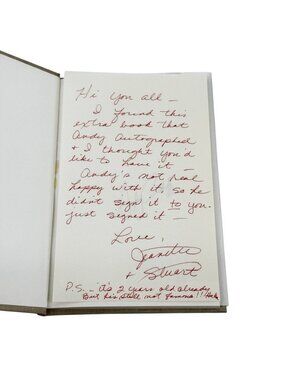 Hi you all —
I found this
extra book that
Andy Autographed
& I thought you'd
like to have it —
Andy's not real
happy with it, so he
didn't sign it to you.
just signed it —
Love,
Jeanette
+ Stuart
P.S. – it's 2 years old already
But he's still not famous!! Haha